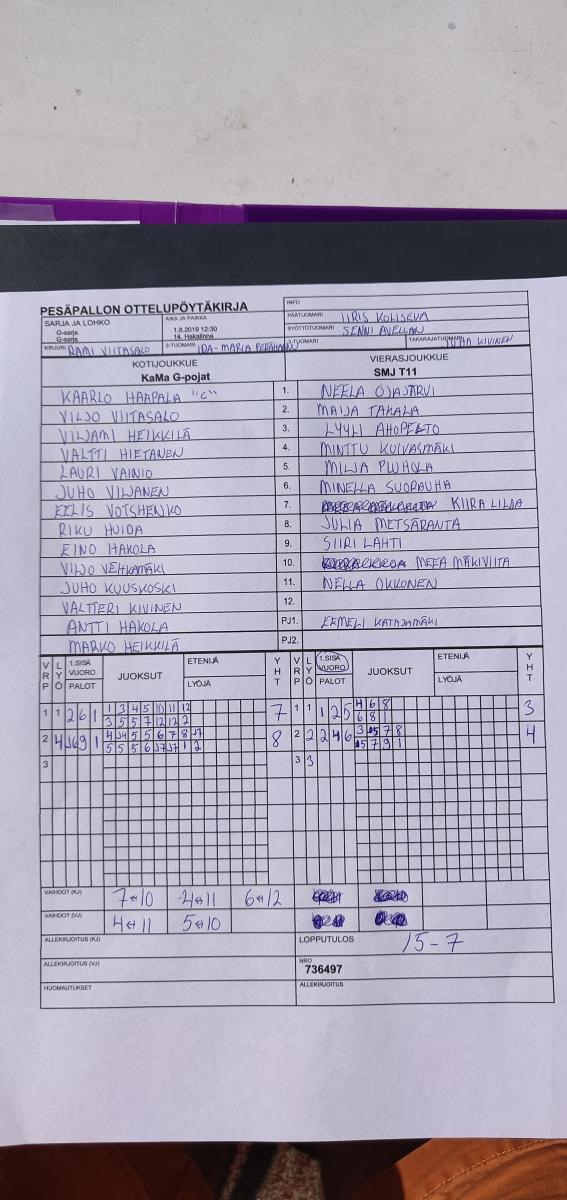 PESÄPALLON OTTELUPÖYTÄKIRJA
INFO
SARJA JA LOHKO
G-sarja
G-sarja
AIKA JA PAIKKA
1.8.2019 12:30
14. Hakalinna
PÄÄTUOMARI IIRIS KOLISEVA
SYÖTTÖTUOMARI SENNI AVELLAN
KIRJURI RAMI VIITASALO
2-TUOMARI IDA-MARIA
3-TUOMARI
TAKARAJATUOMARI JUHA KIVINEN
KOTIJOUKKUE
KaMa G-pojat
VIERASJOUKKUE
SMJ T11
KAARLO HAAPALA "C" 1. NEELA OJAJÄRVI
VILJO VIITASALO 2. MAIJA TAKALA
VILJAMI HEIKKILÄ 3. LYYLI AHOPELTO
VALTTI HIETANEN 4. MINTTU KUIVASMÄKI
LAURI VAINIO 5. MILJA PUUHOLA
JUHO VILJANEN 6. MINELLA SUORAUHA
EELIS VOTSHENKO 7. KIIRA LILJA
RIKU HUIDA 8. JULIA METSÄRANTA
EINO HAKOLA 9. SIIRI LAHTI
VILJO VEHKAMÄKI 10. MEEA MÄKIVIITA
JUHO KUUSKOSKI 11. NELLA OKKONEN
VALTTERI KIVINEN 12.
ANTTI HAKOLA PJ1. EEMELI KATAJAMÄKI
MARKO HEIKKILÄ PJ2.
VRP LYÖ 1.SISÄ VUORO PALOT JUOKSUT ETENIJÄ LYÖJÄ YHT VRP LYÖ 1.SISÄ VUORO PALOT JUOKSUT ETENIJÄ LYÖJÄ YHT
1 1 2 6 1 1 3 4 5 10 11 12 7 1 1 1 2 5 4 6 8 3
3 5 5 7 12 12 2 6 8 1
2 4 J 6 9 1 4 J4 5 5 6 7 8 J7 8 2 2 2 4 6 3 5 7 8 4
5 5 5 6 J7 J7 1 2 5 7 9 1
3 3 3
VAIHDOT (KJ) 7↔10 4↔11 6↔12
VAIHDOT (VJ) 4↔11 5↔10
ALLEKIRJOITUS (KJ)
LOPPUTULOS 15-7
ALLEKIRJOITUS (VJ)
NRO
736497
HUOMAUTUKSET
ALLEKIRJOITUS